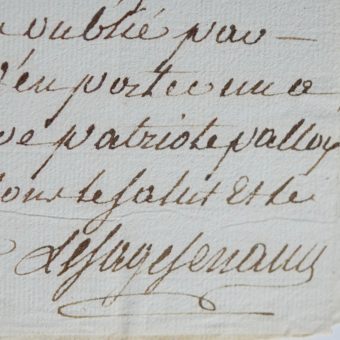 oublié par
j'en porte une
patriote palloy
le salut Est le
Lesage Senault